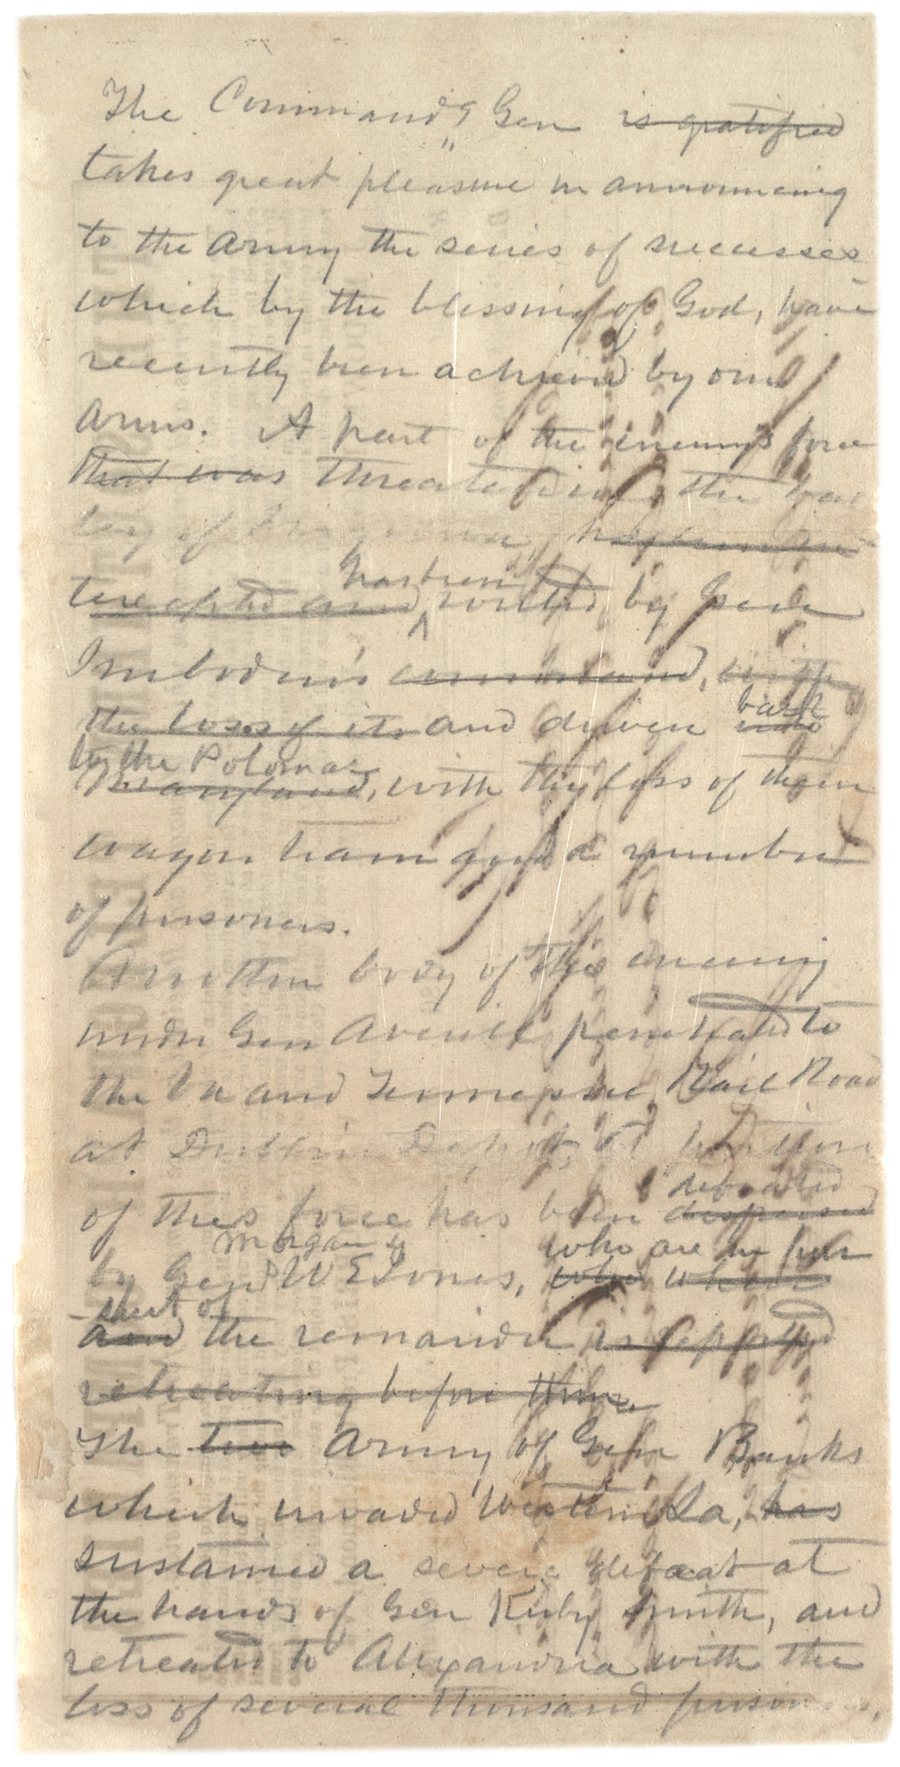 The Command'g Gen is gratified
takes great pleasure in announcing
to the Army the series of successes
which by the blessing of God, have
recently been achieved by our
arms. A part of the enemy's force
that was threatening the Val
ley of Virginia, has been in
tercepted and routed by Gen
has been
Imboden's command, with
the loss of its and driven into
back
to the Potomac
Maryland, with the loss of their
wagon train and a number
of prisoners.
Another body of the enemy
under Gen Averell penetrated to
the Va and Tennessee Rail Road
at Dublin Depot. A portion
of this force has been dispersed
defeated
Morgan &
who are in pur
by Gen W E Jones, who
-suit of
and the remainder is reported
retreating before them.
The two Army of Gen Banks
which invaded Western La, has
sustained a severe defeat at
the hands of Gen Kirby Smith, and
retreated to Alexandria with the
loss of several thousand prisoners,